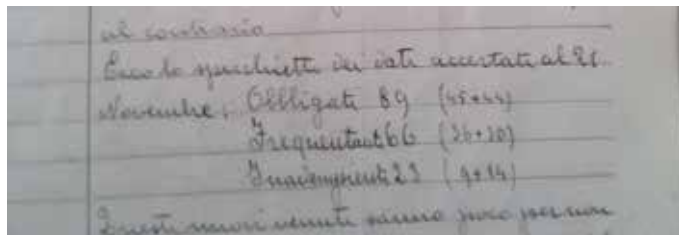 al contrario
Ecco lo specchietto dei dati accertati al 21
Novembre: Obbligati 89 (45+44)
Frequentanti 66 (36+30)
Inadempienti 23 (9+14)
Questi nuovi venuti sanno poco per non